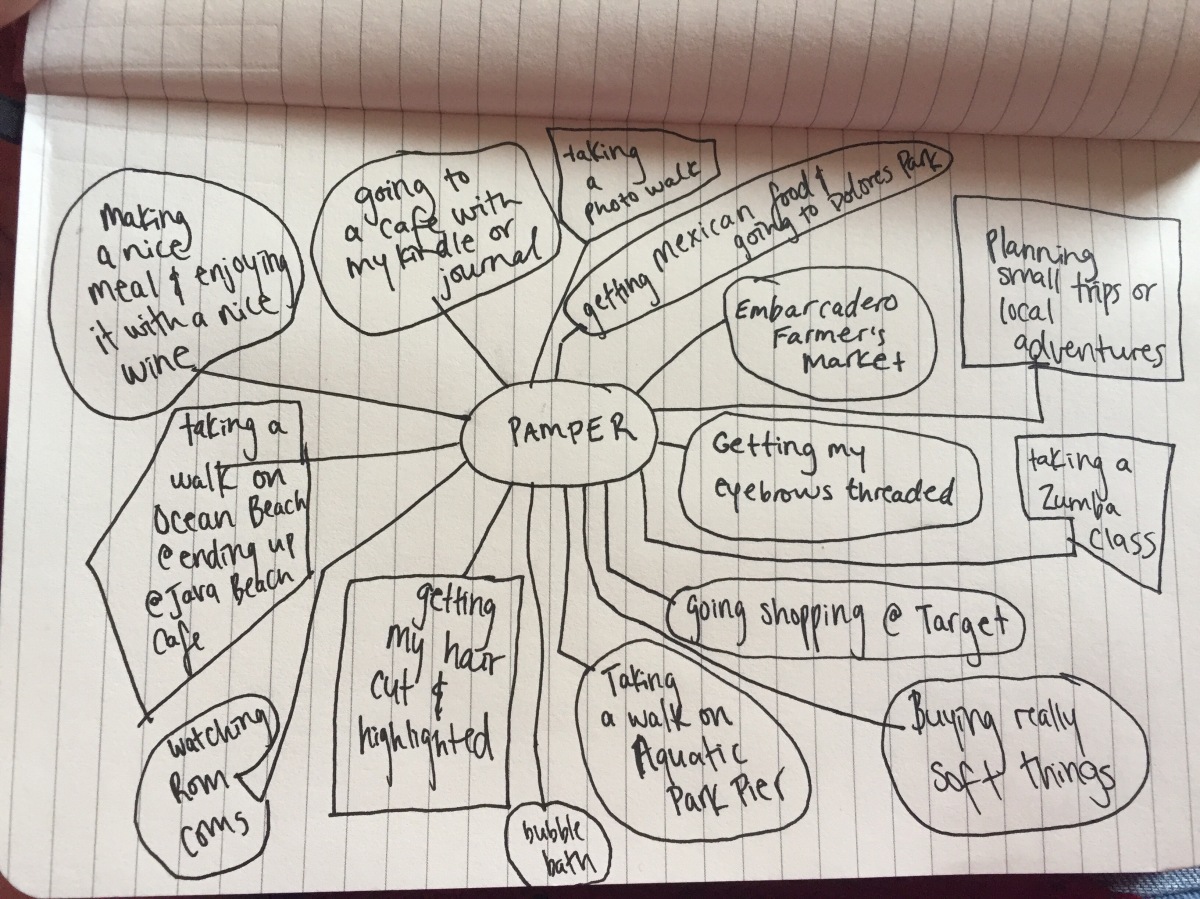 making
a nice
meal & enjoying
it with a nice
wine
going to
a cafe with
my kindle or
journal
taking
a
photo walk
getting Mexican food &
going to Dolores Park
Embarcadero
Farmer's
Market
Planning
small trips or
local
adventures
PAMPER
taking a
walk on
Ocean Beach
@ ending up
@ Java Beach
Cafe
Getting my
eyebrows threaded
taking a
Zumba
class
going shopping @ Target
getting
my hair
cut &
highlighted
Taking
a walk on
Aquatic
Park Pier
Buying really
soft things
watching
Rom
coms
bubble
bath